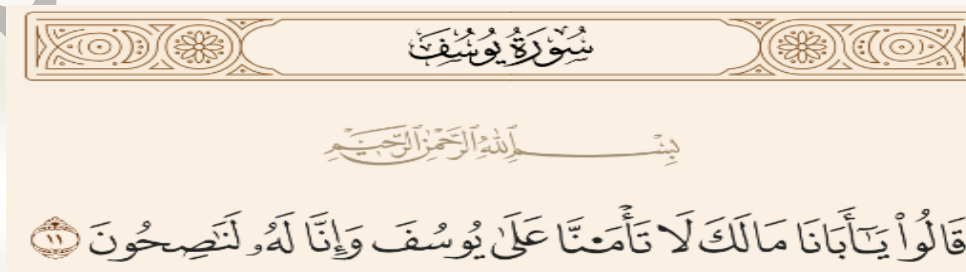 سُورَةُ يُوسُفَ
بِسْمِ ٱللَّهِ ٱلرَّحْمَٰنِ ٱلرَّحِيمِ
قَالُوا۟ يَٰٓأَبَانَا مَالَكَ لَا تَأْمَ۫نَّا عَلَىٰ يُوسُفَ وَإِنَّا لَهُۥ لَنَٰصِحُونَ ١١